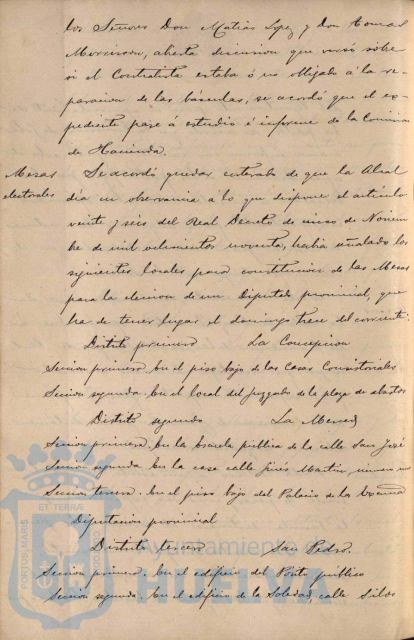 los Señores Don Matias Lopez y Don Tomas
Morrison, abierta discusion que versó sobre
si el Contratista estaba ó no obligado á la re-
paracion de las básculas, se acordó que el ex-
pediente pase á estudio é informe de la Comision
de Hacienda.
Mesas
electorales
Se acordó quedar enterado de que la Alcal
dia en observancia á lo que dispone el artículo
veinte y seis del Real Decreto de cinco de Noviem
bre de mil ochocientos noventa, habia señalado los
siguientes locales para constitucion de las Mesas
para la eleccion de un Diputado provincial, que
ha de tener lugar el domingo trece del corriente.
Distrito primero La Concepcion
Seccion primera. En el piso bajo de las Casas Consistoriales
Seccion segunda. En el local del Juzgado de la plaza de abastos
Distrito segundo La Merced
Seccion primera. En la Escuela pública de la calle San José
Seccion segunda. En la casa calle Ginés Martin, número
Seccion tercera. En el piso bajo del Palacio de la Excma
Diputacion provincial
Distrito tercero San Pedro.
Seccion primera. En el edificio del Posito público
Seccion segunda. En el edificio de la Soledad, calle Silos
ET TERRAE
PORTUS MARIS
CUSTODIA
Ayuntamiento de
HUELVA